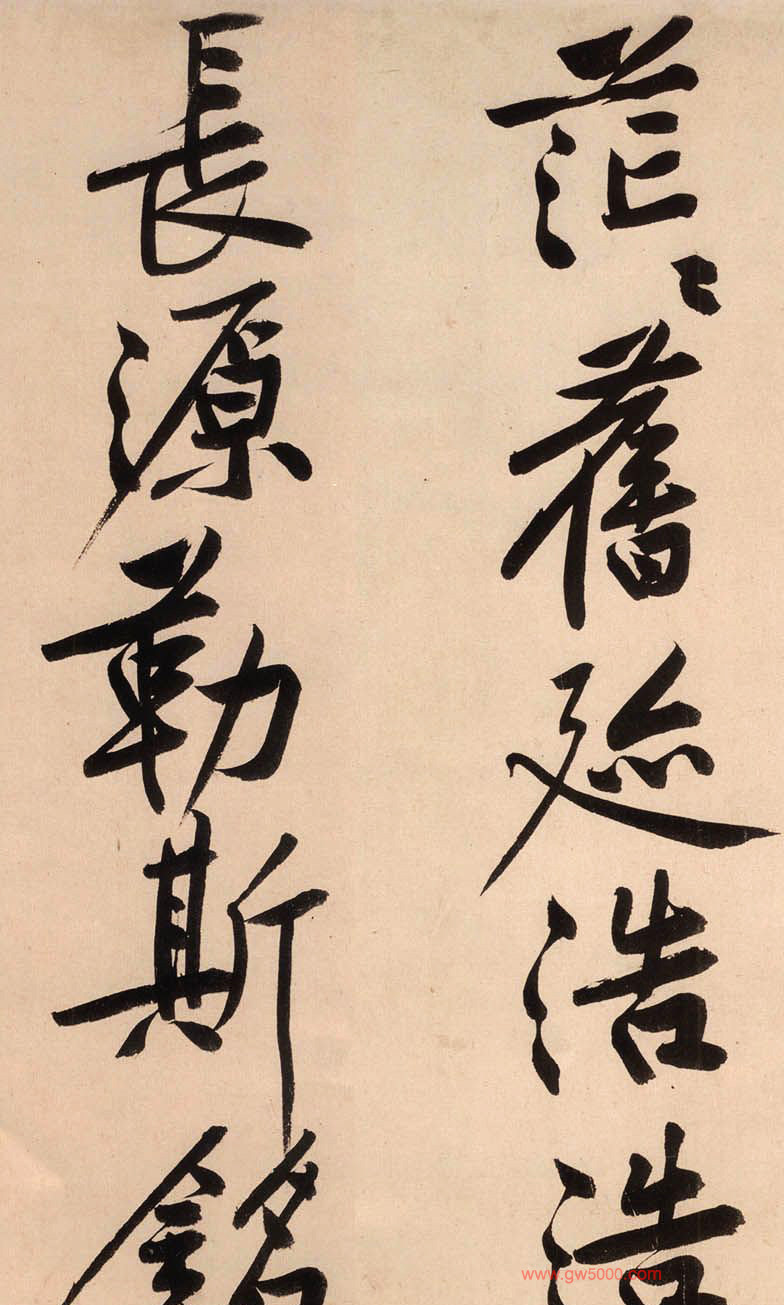 茫〻舊迹浩浩
長源勒斯銘
www.gw5000.com